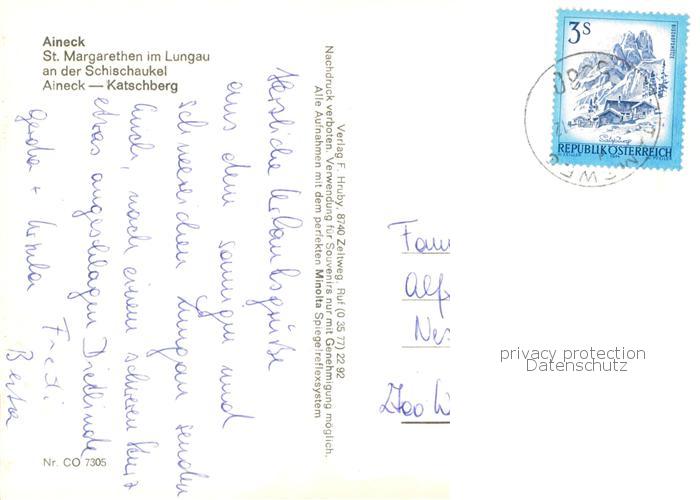 Aineck
St. Margarethen im Lungau
an der Schischaukel
Aineck — Katschberg
Herzliche Urlaubsgrüße
aus dem sonnigen und
schneereichen Lungau senden
Euch, nach einem schweren Kurs
etwas angeschlagen Dietlinde
Gerda + Ursula Fredi
Berta
Nr. CO 7305
Verlag F. Hruby, 8740 Zeltweg, Ruf (0 35 77) 22 92
Nachdruck verboten. Verwendung für Souvenirs nur mit Genehmigung möglich.
Alle Aufnahmen mit dem perfekten Minolta Spiegelreflexsystem
3S
BISCHOFSMÜTZE
Salzburg
REPUBLIK ÖSTERREICH
Fam
Alf
Ne
privacy protection
Datenschutz